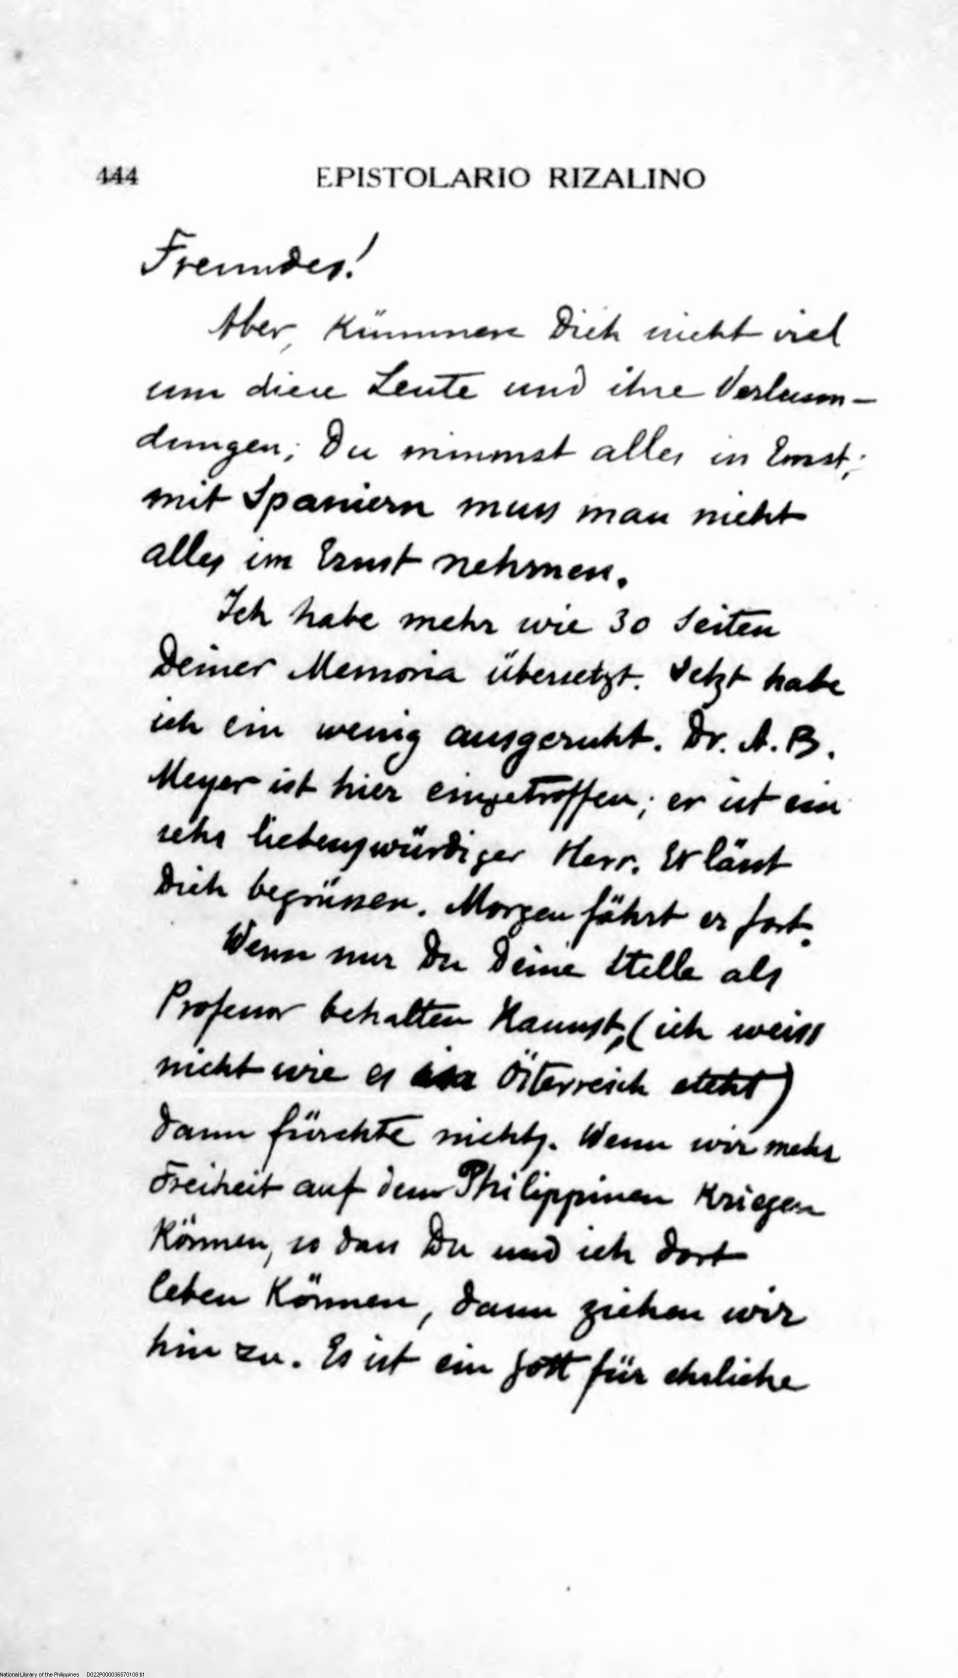 444 EPISTOLARIO RIZALINO
Freundes!
Aber, kümmere Dich nicht viel
um diese Leute und ihre Verleum-
dungen; Du nimmst alles in Ernst;
mit Spaniern muss man nicht
alles im Ernst nehmen.
Ich habe mehr wie 30 Seiten
Deiner Memoria übersetzt. Jetzt habe
ich ein wenig ausgeruht. Dr. A. B.
Meyer ist hier eingetroffen; er ist ein
sehr liebenswürdiger Herr. Er lässt
Dich begrüssen. Morgen fährt er fort.
Wenn nur Du Deine Stelle als
Professor behalten kannst, (ich weiss
nicht wie es in Österreich steht)
dann fürchte nichts. Wenn wir mehr
Freiheit auf den Philippinen kriegen
können, so dass Du und ich dort
leben können, dann ziehen wir
hin zu. Es ist ein Gott für ehrliche
National Library of the Philippines